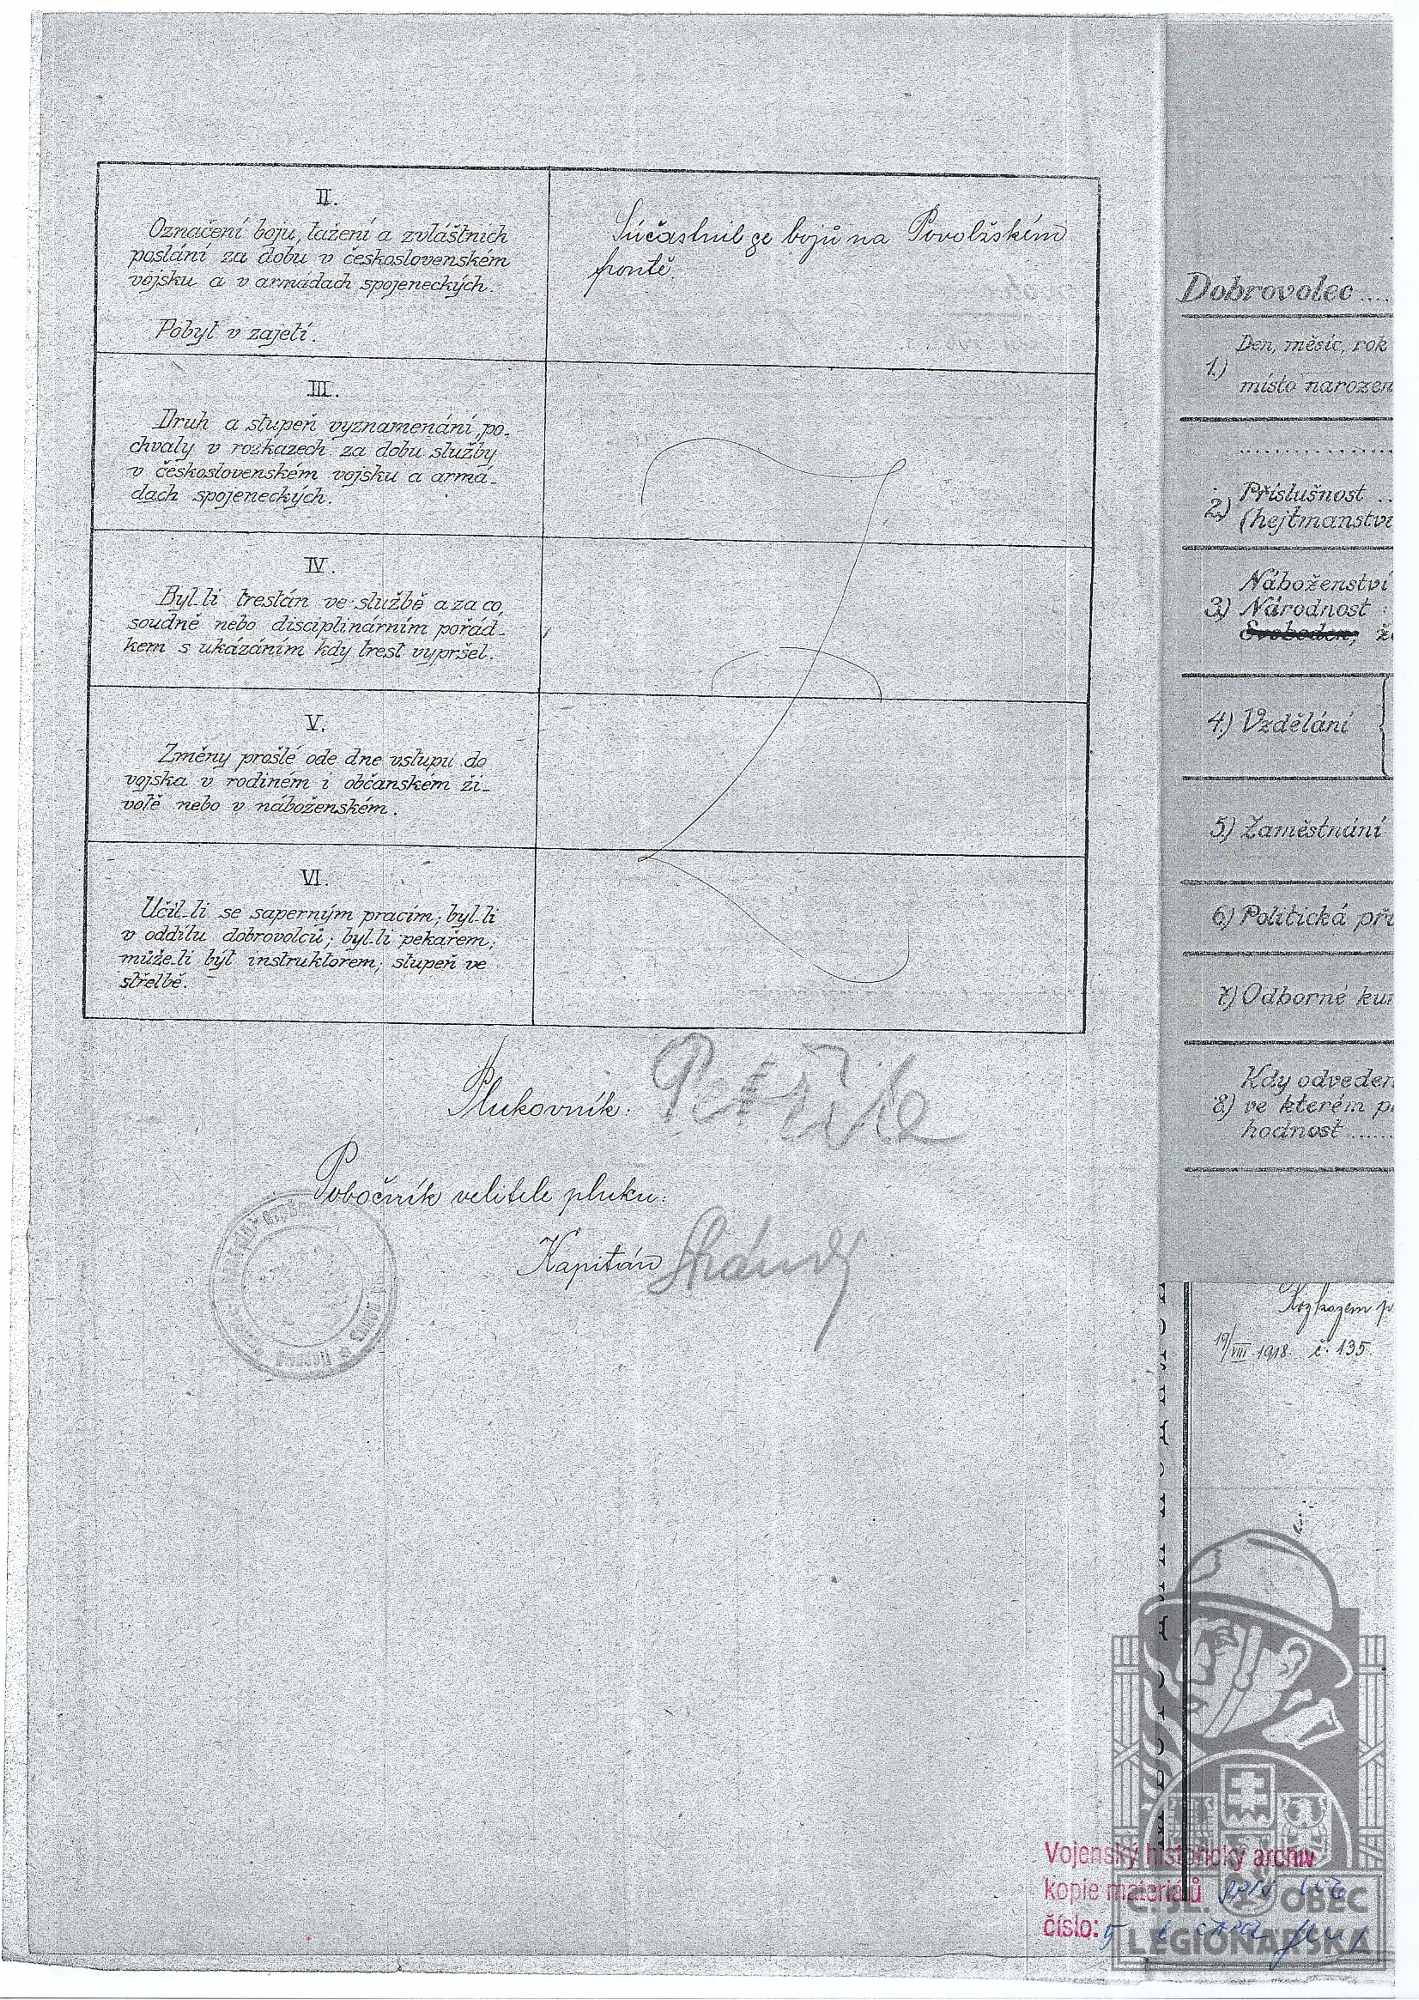 II.
Označení boju, tažení a zvláštních
poslání za dobu v československém
vojsku a v armádach spojeneckých.
Pobyt v zajetí.
Súčastnil se bojů na Povolžském
frontě.
III.
Druh a stupeň vyznamenání, po-
chvaly v rozkazech za dobu služby
v československém vojsku a armá-
dach spojeneckých.
IV.
Byl-li trestán ve službě a za co,
soudně nebo disciplinárním pořád-
kem s ukázáním kdy trest vypršel.
V.
Změny prošlé ode dne vstupu do
vojska v rodiném i občanském ži-
votě nebo v náboženském.
VI.
Učil-li se saperným pracím; byl-li
v oddílu dobrovolců; byl-li pekařem;
může-li být instruktorem; stupeň ve
střelbě.
Plukovník:
Pobočník velitele pluku:
Kapitán
Dobrovolec ....
1.) Den, měsíc, rok
místo narozen
2.) Příslušnost ..
(hejtmanství
Náboženství
3.) Národnost
Svoboden, že
4.) Vzdělání
5.) Zaměstnání
6.) Politická pří
7.) Odborné kur
Kdy odveden
8.) ve kterém p
hodnost ......
Rozkazem p
19/VIII 1918. č. 135.
Vojenský historický archiv
kopie materiálů
číslo: 5
ČSL. OBEC
LEGIONÁŘSKÁ